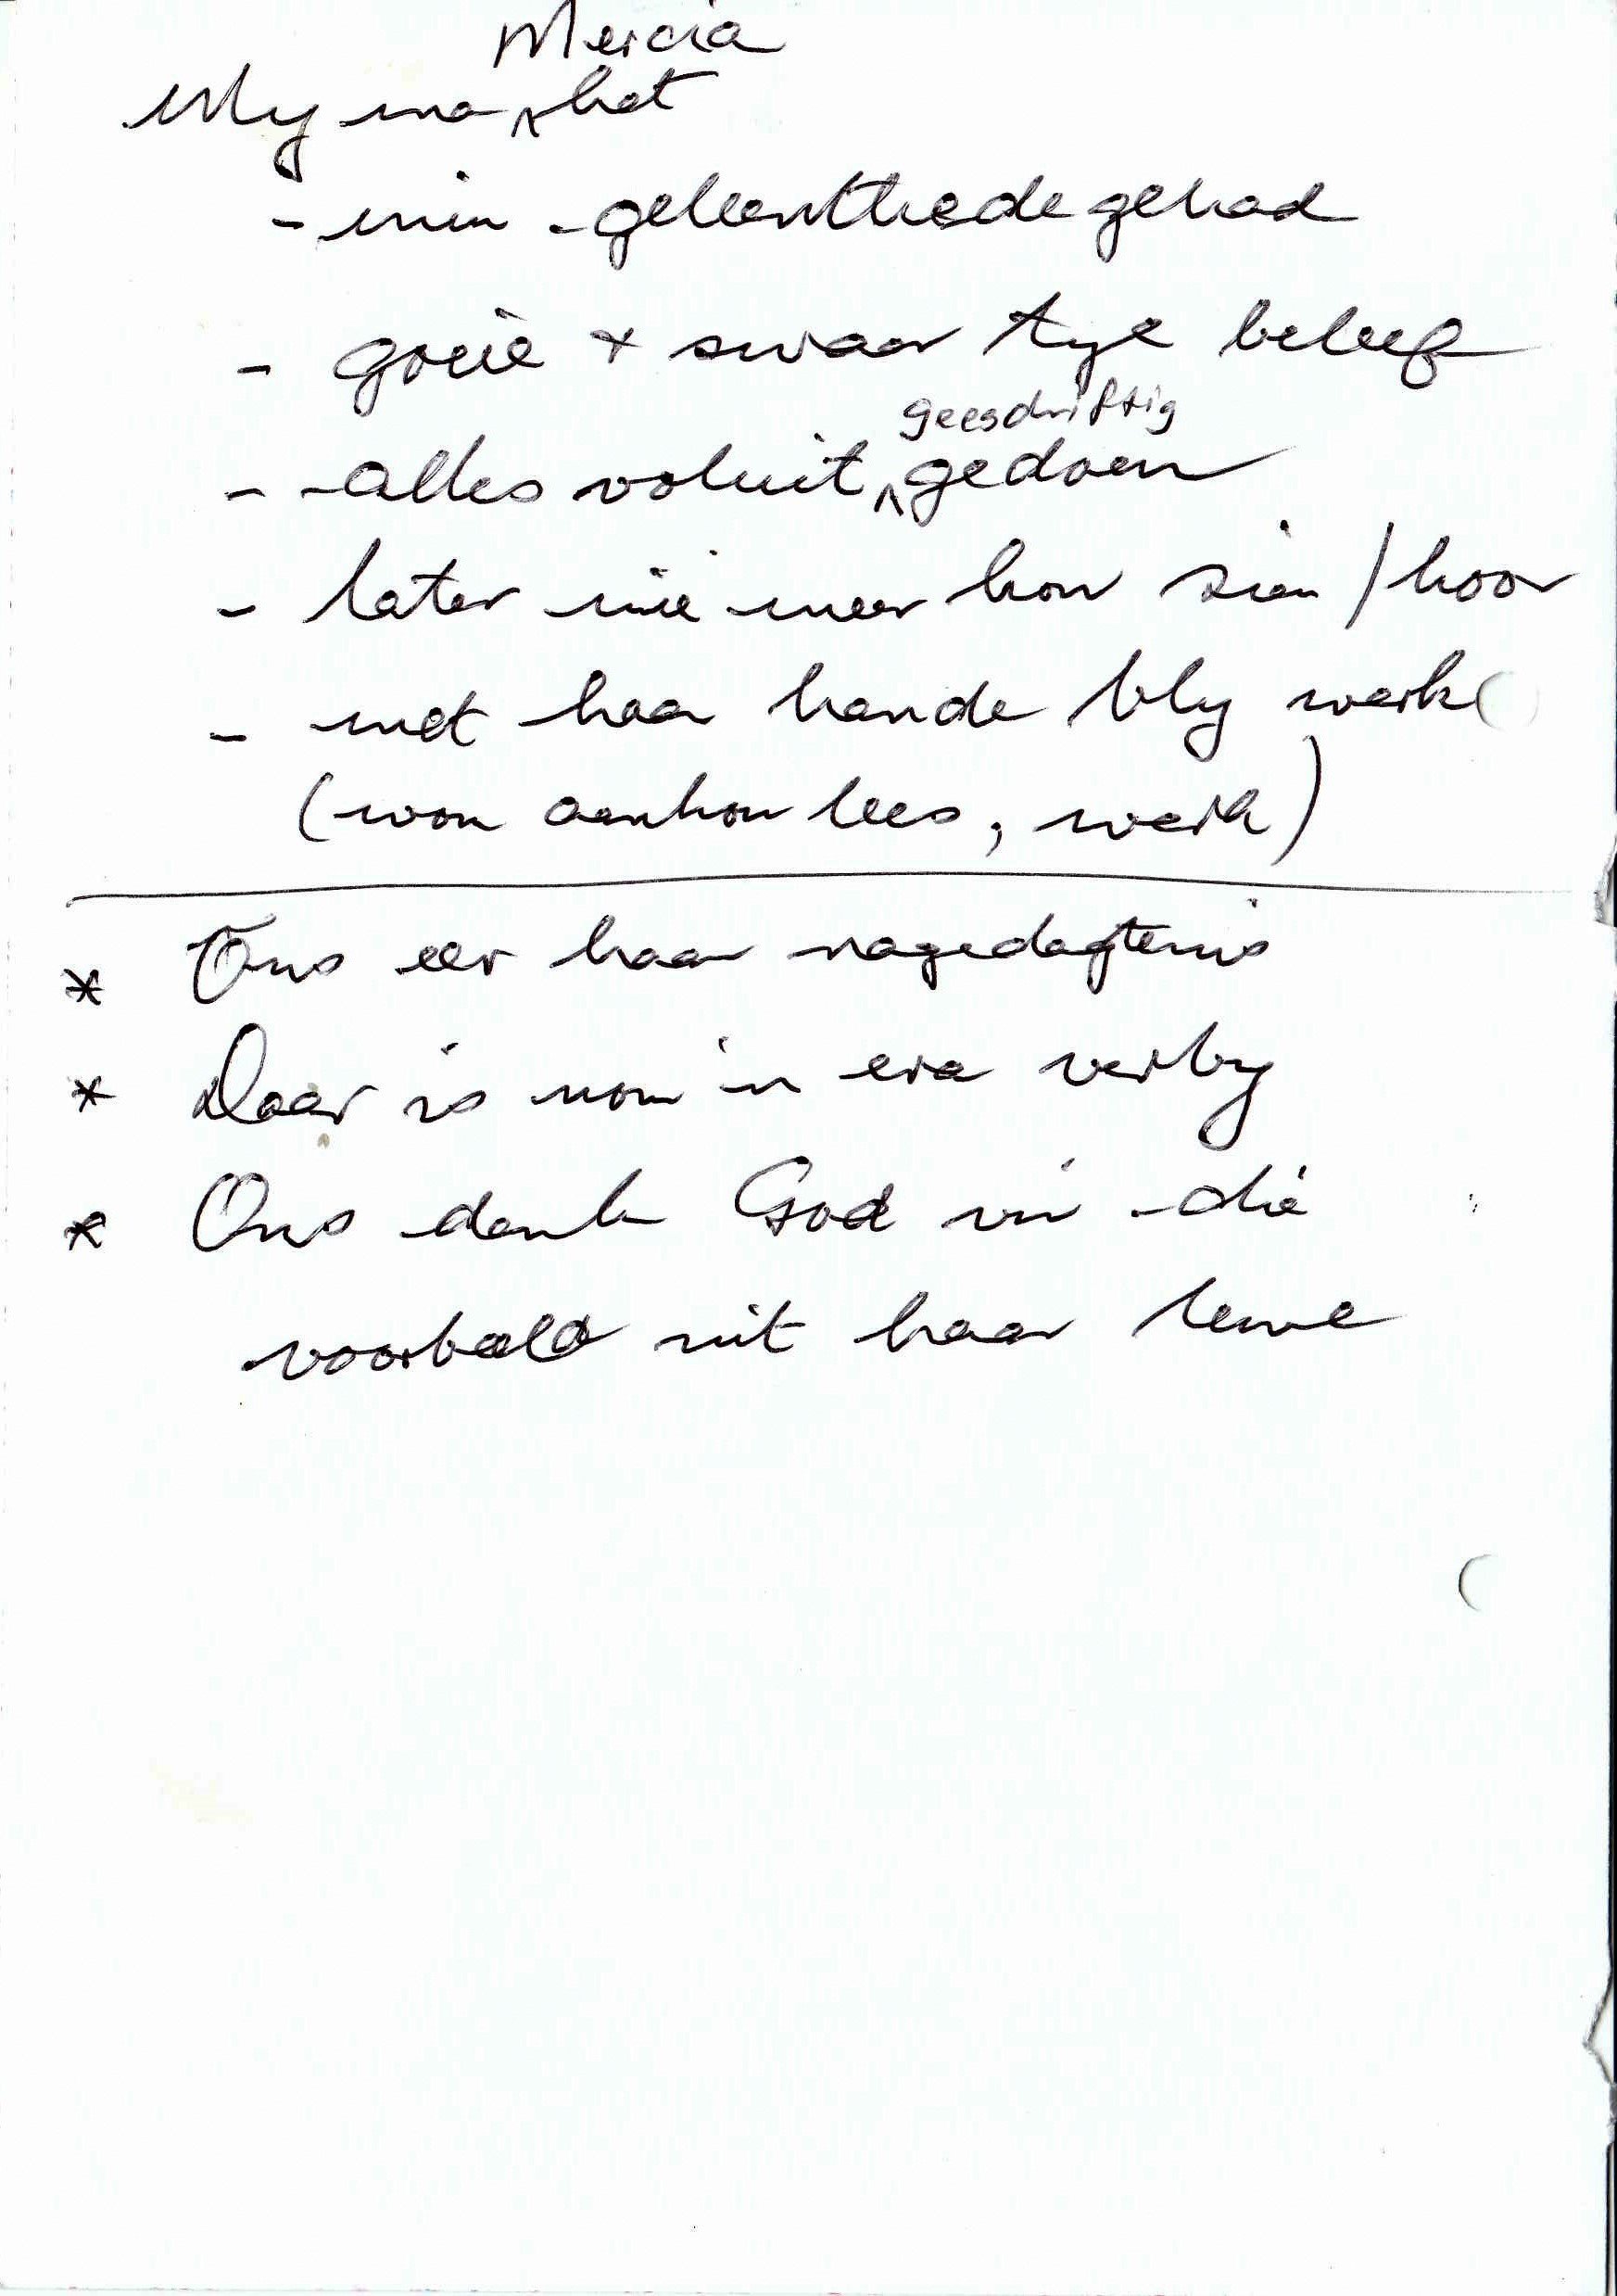 Mercia
My ma ^ het
- min geleenthede gehad
- goeie + swaar tye beleef
geesdriftig
- alles voluit ^ gedoen
- later nie meer kon sien / hoor
- met haar hande bly werk
(wou aanhou lees, werk)
* Ons eer haar nagedagtenis
* Daar is nou 'n era verby
* Ons dank God vir die
voorbeeld uit haar lewe